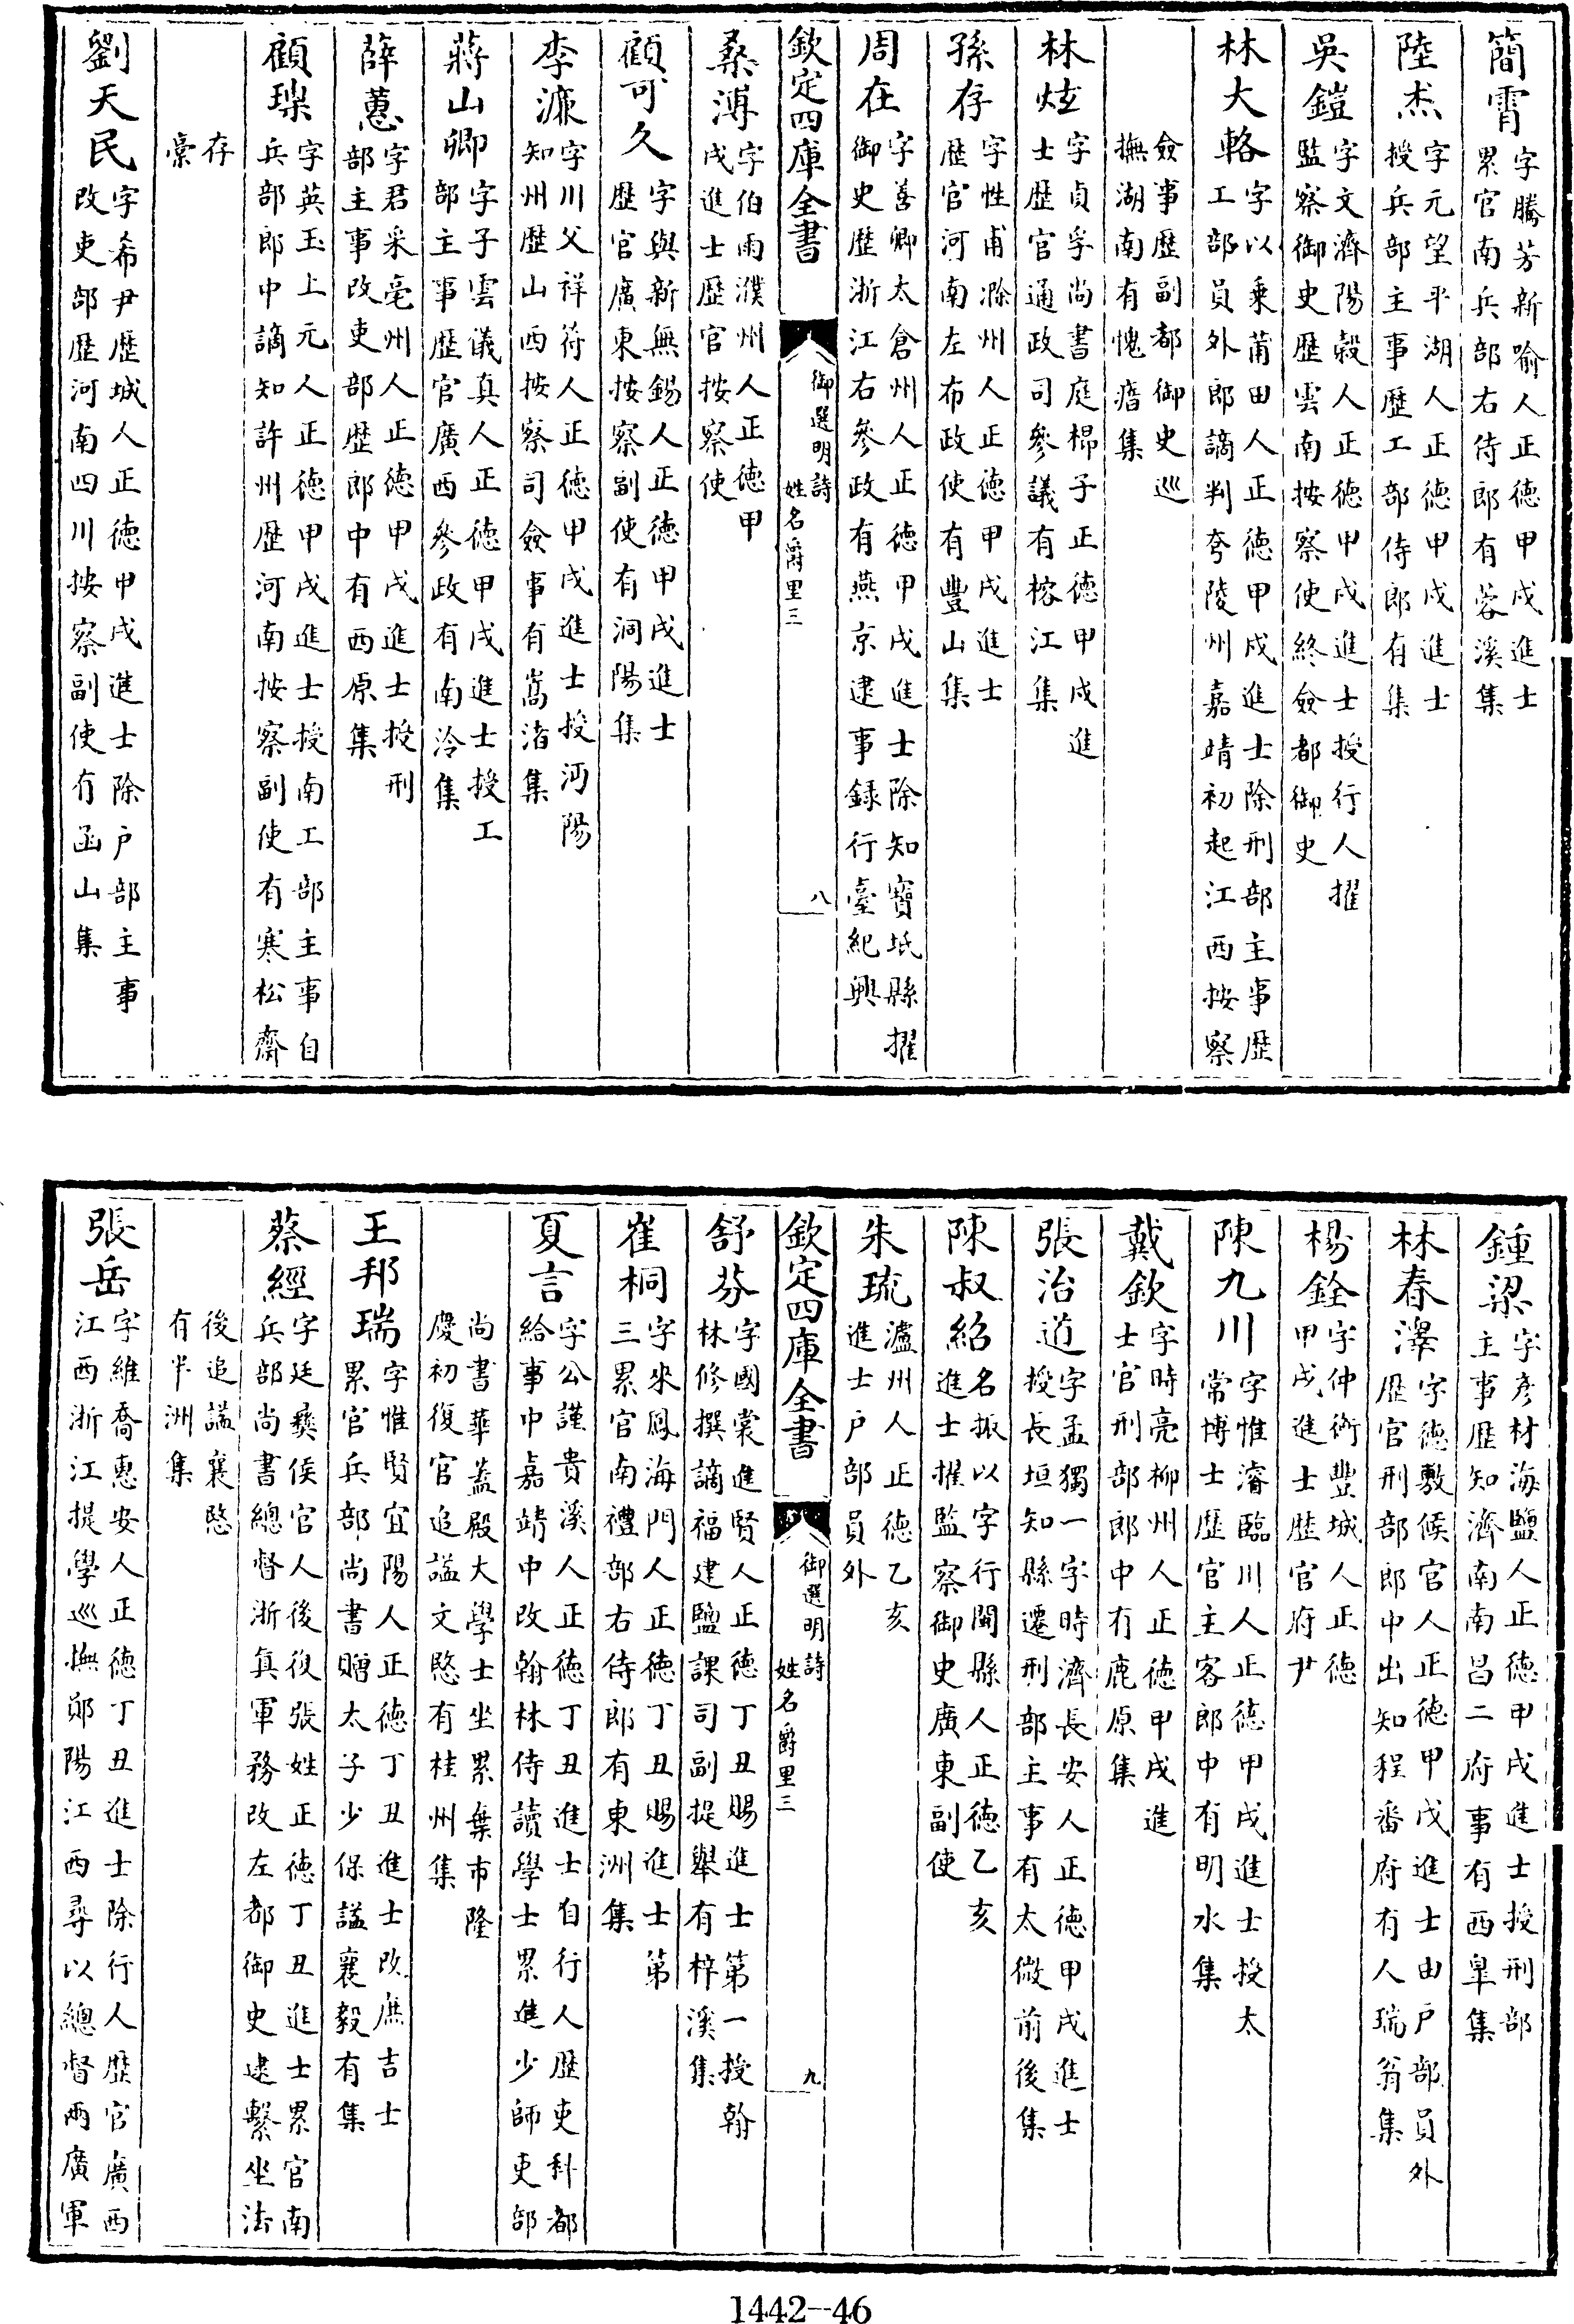 簡霄字騰芳新喻人正德甲戌進士累官南兵部右侍郎有蓉溪集
陸杰字元望平湖人正德甲戌進士授兵部主事歴工部侍郎有集
吳鎧字文濟陽榖人正德甲戌進士授行人擢監察御史歴雲南按察使終僉都御史
林大輅字以乗莆田人正德甲戌進士除刑部主事歴工部員外郎謫判夸陵州嘉靖初起江西按察
僉事歴副都御史巡撫湖南有愧瘖集
林炫字貞孚尚書庭㭿子正德甲戌進士歴官通政司參議有榕江集
孫存字性甫滁州人正德甲戌進士歴官河南左布政使有豐山集
周在字善卿太倉州人正德甲戌進士除知寶坻縣擢御史歴浙江右參政有燕京逮事録行臺紀興
欽定四庫全書 御選明詩 姓名爵里三 八
桑溥字伯雨濮州人正德甲戌進士歴官按察使
顧可久字與新無錫人正德甲戌進士歴官廣東按察副使有洞陽集
李濂字川父祥符人正德甲戌進士授沔陽知州歴山西按察司僉事有嵩渚集
蔣山卿字子雲儀真人正德甲戌進士授工部主事歴官廣西參政有南泠集
薛蕙字君采亳州人正德甲戌進士授刑部主事改吏部歴郎中有西原集
顧璪字英玉上元人正德甲戌進士授南工部主事自兵部郎中謫知許州歴河南按察副使有寒松齋
存槀
劉天民字希尹歴城人正德甲戌進士除户部主事改吏部歴河南四川按察副使有函山集
鍾梁字彥材海鹽人正德甲戌進士授刑部主事歴知濟南南昌二府事有西臯集
林春澤字德敷候官人正德甲戌進士由户部員外歴官刑部郎中出知程番府有人瑞翁集
楊銓字仲衡豐城人正德甲戌進士歴官府尹
陳九川字惟濬臨川人正德甲戌進士授太常博士歴官主客郎中有明水集
戴欽字時亮柳州人正德甲戌進士官刑部郎中有鹿原集
張治道字孟獨一字時濟長安人正德甲戌進士授長垣知縣遷刑部主事有太微前後集
陳叔紹名振以字行閩縣人正德乙亥進士擢監察御史廣東副使
朱琉瀘州人正德乙亥進士户部員外
欽定四庫全書 御選明詩 姓名爵里三 九
舒芬字國裳進賢人正德丁丑賜進士第一授翰林修撰謫福建鹽課司副提舉有梓溪集
崔桐字來鳳海門人正德丁丑賜進士第三累官南禮部右侍郎有東洲集
夏言字公謹貴溪人正德丁丑進士自行人歴吏科都給事中嘉靖中改翰林侍讀學士累進少師吏部
尚書華蓋殿大學士坐累棄市隆慶初復官追謚文愍有桂州集
王邦瑞字惟賢宜陽人正德丁丑進士改庶吉士累官兵部尚書贈太子少保謚襄毅有集
蔡經字廷彝侯官人後復張姓正德丁丑進士累官南兵部尚書總督浙真軍務改左都御史逮繫坐法
後追謚襄愍有半洲集
張岳字維喬惠安人正德丁丑進士除行人歴官廣西江西浙江提學巡撫鄖陽江西尋以總督兩廣軍
1442-46